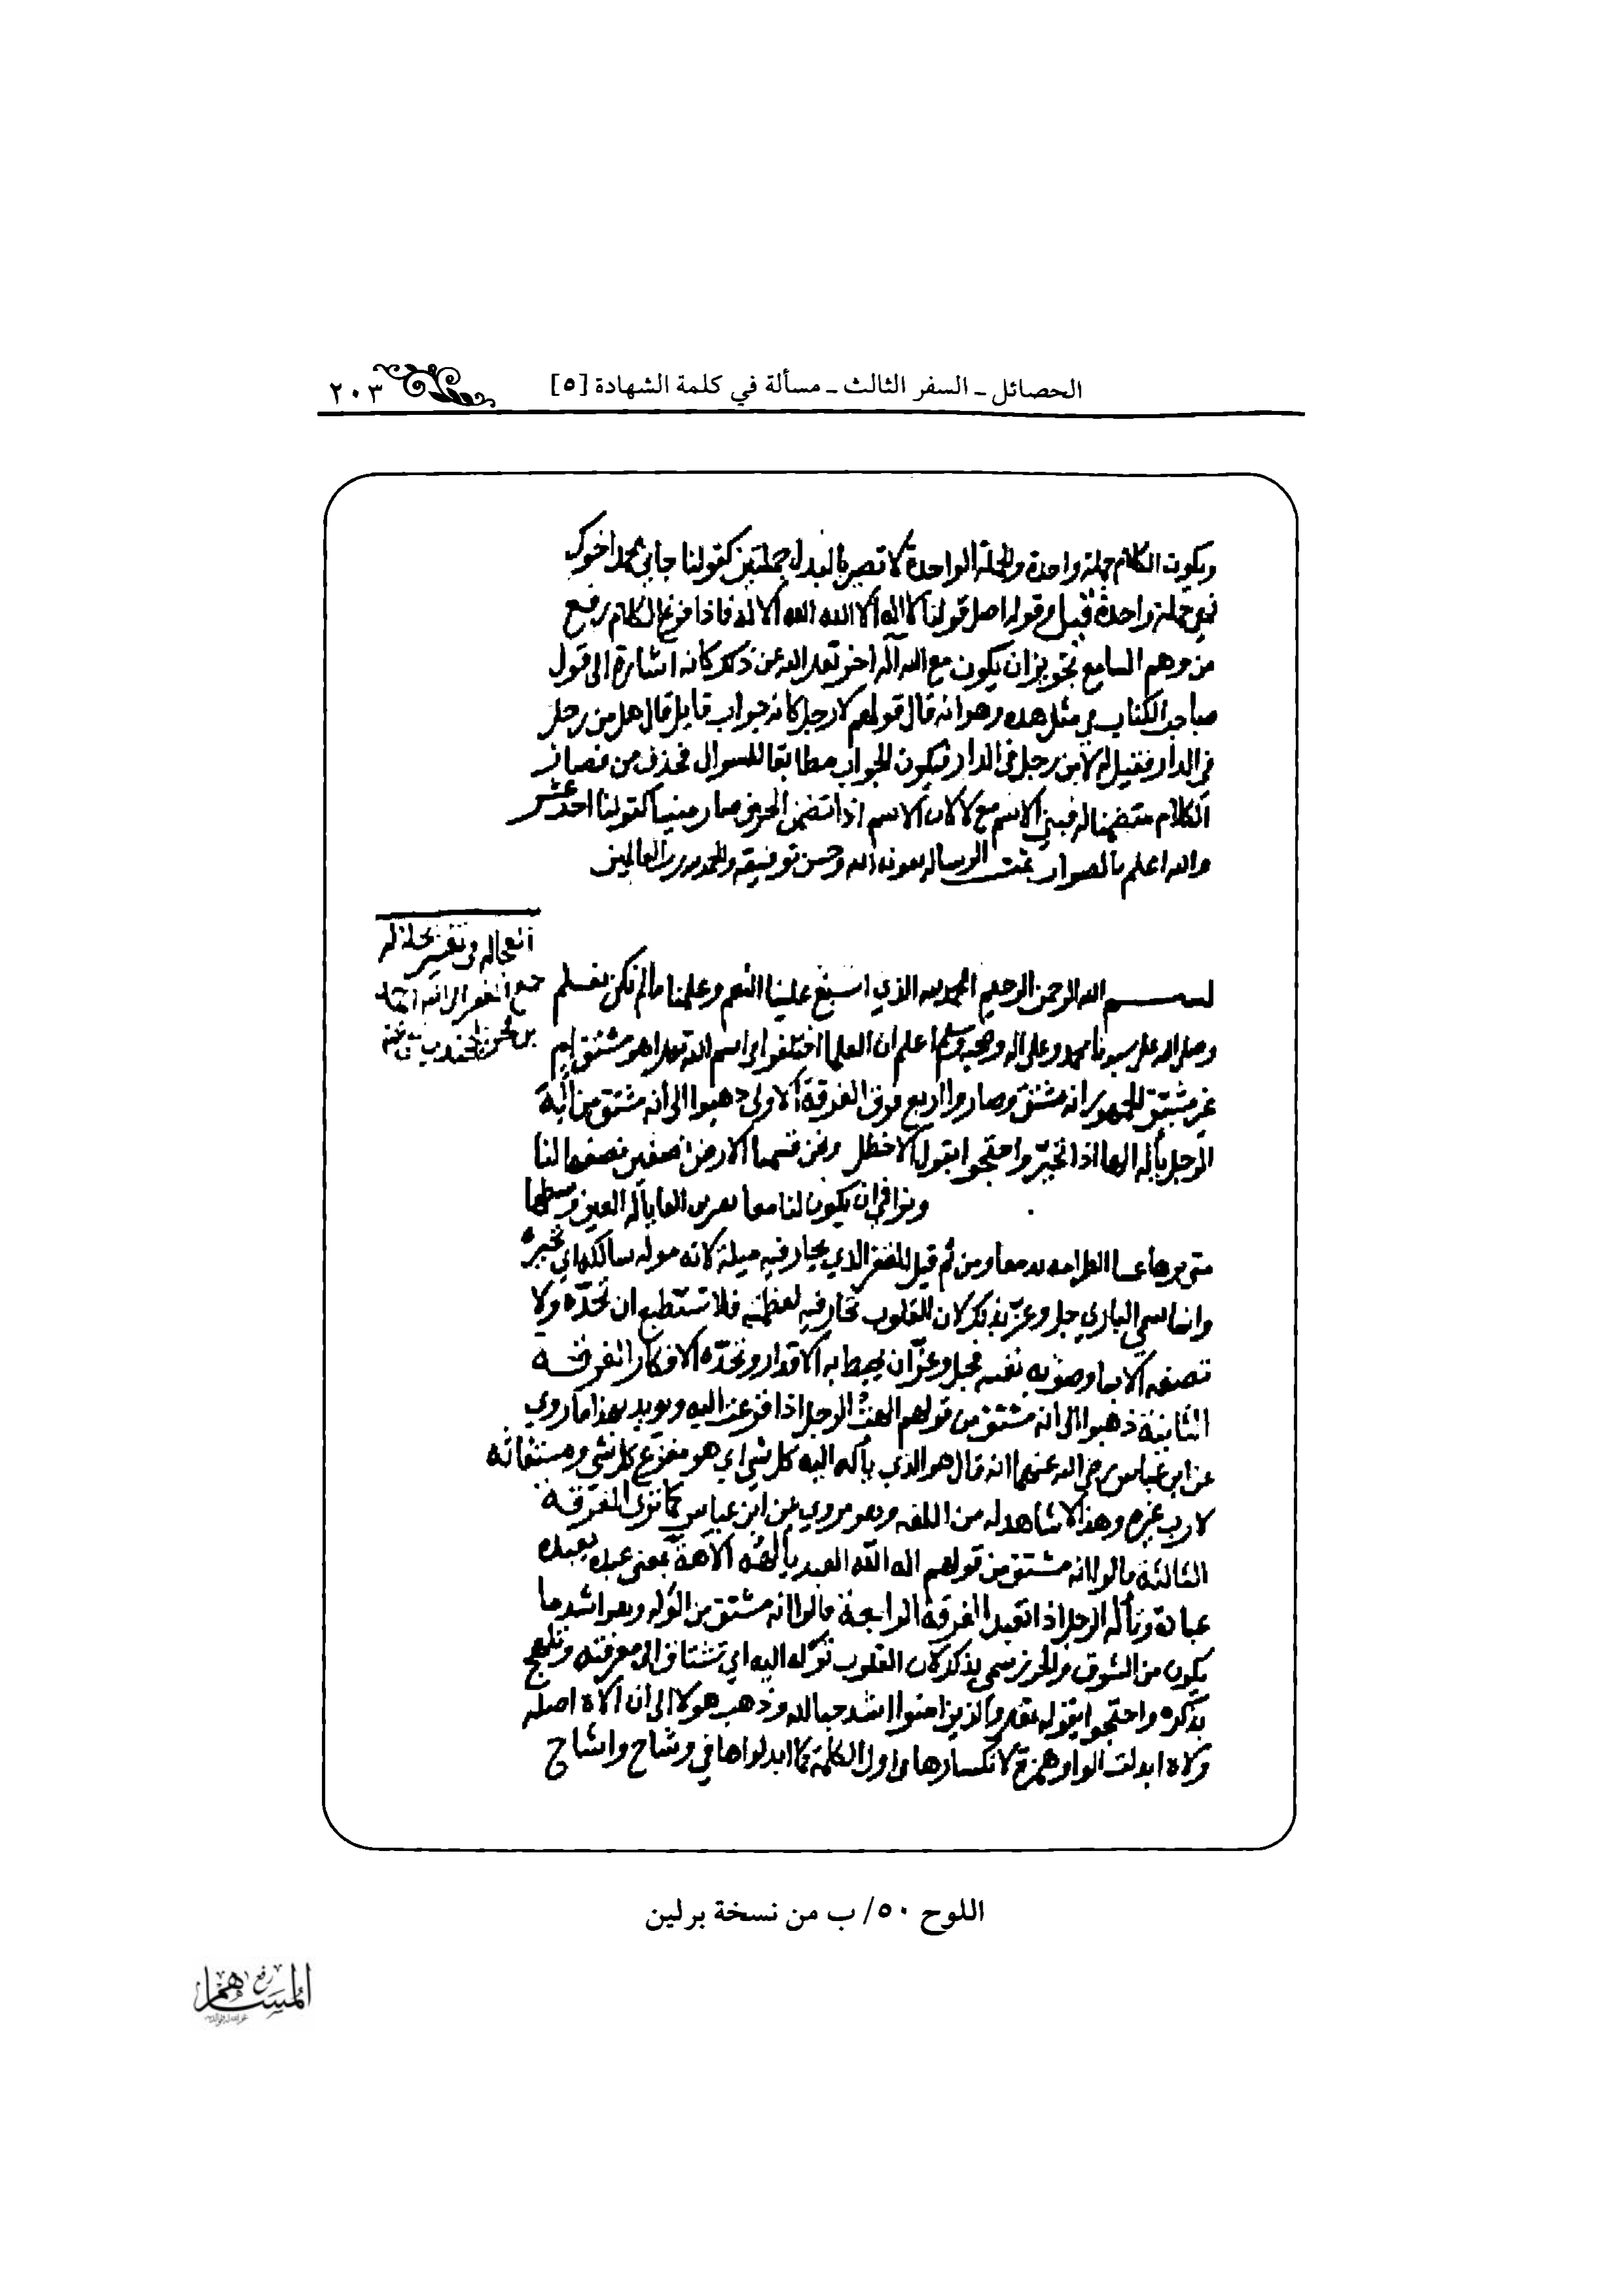 الحصائل ـ السفر الثالث ـ مسألة في كلمة الشهادة [٥]
٢٠٣
ويكون الكلام جملة واحدة والجملة الواحدة لا تصير بالبدل جملتين كقولنا جاني محمد اخوك
فهي جملة واحدة قيل وقوله اصل قولنا لا اله الا الله الله الاله فاذا فرغ الكلام رفع
من وهم السامع تجويز ان يكون مع الله اله اخر تعلى الله عن ذلك كانه اشارة الى قول
صاحب الكتاب في مثل هذه وهو انه قال قولهم لا رجل كانه جواب قايل قال هل من رجل
في الدار فقيل له لا من رجل في الدار فيكون الجواب مطابقا للسوال فحذف من فصار
الكلام متضمنا له فبني الاسم مع لا لان الاسم اذا تضمن الحرف صار مبنيا كقولنا احد عشر
والله اعلم بالصواب تمت الرساله بعون الله وحسن توفيقه والحمد لله رب العالمين
في تفسير
جمع الفقير احمد
بسم الله الرحمن الرحيم الحمد لله الذي اسبغ علينا النعم وعلمنا مالم نكن نعلم
وصلى الله على سيدنا محمد وعلى اله وصحبه وسلم اعلم ان العلما اختلفوا في اسم الله تعلى اهو مشتق ام
غير مشتق الجمهور انه مشتق وصاروا اربع فرق الفرقة الاولى ذهبوا الى انه مشتق من اله
الرجل يأله الها اذا تحير واحتجوا بقول الاخطل ونحن قسمنا الارض نصفين نصفها لنا
ونرا في ان يكون لنا معا العين وسطها
متى ومن ثم قيل للقفر الذي يحار فيه ميله لانه موله سالكها اي تحيره
وانما سمي الباري جل وعز بذلك لان القلوب تحار فيه لعظمته فلا تستطيع ان تحده ولا
تصفه الا بما وصف به نفسه فجل وعز ان يحيط به الاقدار وتحده الافكار الفرقـة
الثانية ذهبوا الى انه مشتق من قولهم الهت الرجل اذا فزعت اليه ويويد بهذا ما روي
عن ابن عباس رضي الله عنهما انه قال هو الذي يأله اليه كل شي اي هو مفزع كل شي ومستغاثه
لا رب غيره وهذا لا شاهد له من اللغه وهو مروي عن ابن عباس كما ترى الفرقـة
الثالثة قالوا انه مشتق من قولهم اله الله العبد يألهه الاهة بمعنى عبده يعبده
عبادة وتأله الرجل اذا تعبد الفرقة الرابعة قالوا انه مشتق من الوله وهو اشد ما
يكون من الشوق والحزن سمي بذلك لان القلوب توله اليه اي تشتاق الى معرفته وتلهج
بذكره واحتجوا بقوله تعلى والذين امنوا اشد حبا لله وذهب هولا الى ان الاه اصله
ولاه ابدلت الواو همزة لانكسارها في اول الكلمة كما ابدلوها في وشاح واشاح
اللوح ٥٠/ ب من نسخة برلين